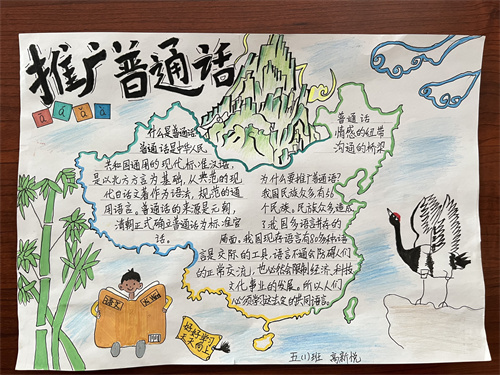 推广普通话
ā á ǎ à
什么是普通话
普通话是中华人民
共和国通用的现代标准汉语,
是以北方方言为基础,从典范的现
代白话文著作为语法,规范的通
用语言。普通话的来源是元朝,
清朝正式确立普通话为标准官
话。
普通话
情感的纽带
沟通的桥梁
为什么要推广普通话?
我国民族众多有56
个民族。民族众多造成
了我国多语言并存的
局面,我国现存语言有80多种语
言是交际的工具,语言不通会防碍人们
的正常交流,也必然会限制经济、科技
文化事业的发展。所以人们
必须掌握法定的共同语言。
语文
好好学习
天天向上
五(1)班 高新悦